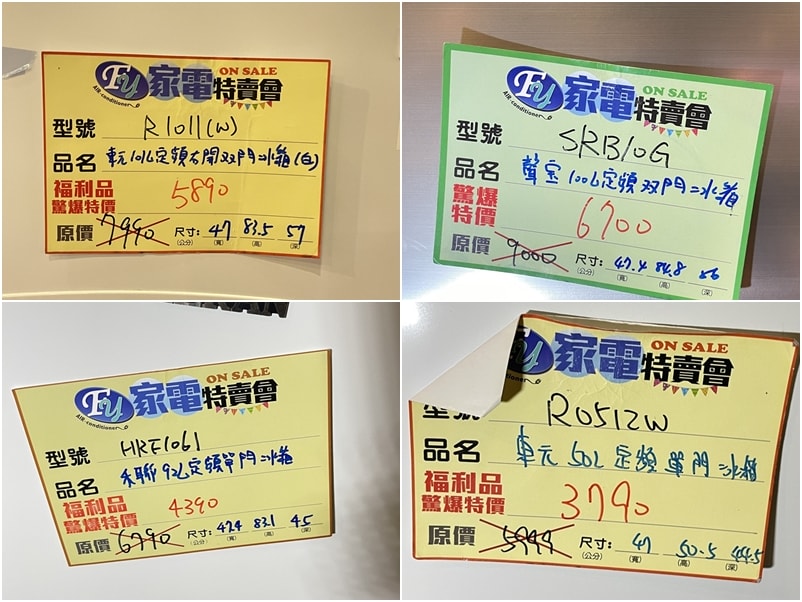 FU 家電特賣會 ON SALE
AIR-conditioner
型號 R1011(W)
品名 東元101L定頻右開双門冰箱(白)
福利品
驚爆特價 5890
原價 7990 尺寸: 47 83.5 57
(公分) (寬) (高) (深)
FU 家電特賣會 ON SALE
AIR-conditioner
型號 SRB10G
品名 聲宝100L定頻双門冰箱
驚爆
特價 6700
原價 9000 尺寸: 47.4 84.8 56
(公分) (寬) (高) (深)
FU 家電特賣會 ON SALE
AIR-conditioner
型號 HRE1061
品名 禾聯92L定頻單門冰箱
福利品
驚爆特價 4390
原價 6790 尺寸: 47.4 83.1 45
(公分) (寬) (高) (深)
家電特賣會 ON SALE
conditioner
型號 R0512W
品名 東元50L定頻單門冰箱
福利品
驚爆特價 3790
原價 5999 尺寸: 47 50.5 44.5
(公分) (寬) (高) (深)